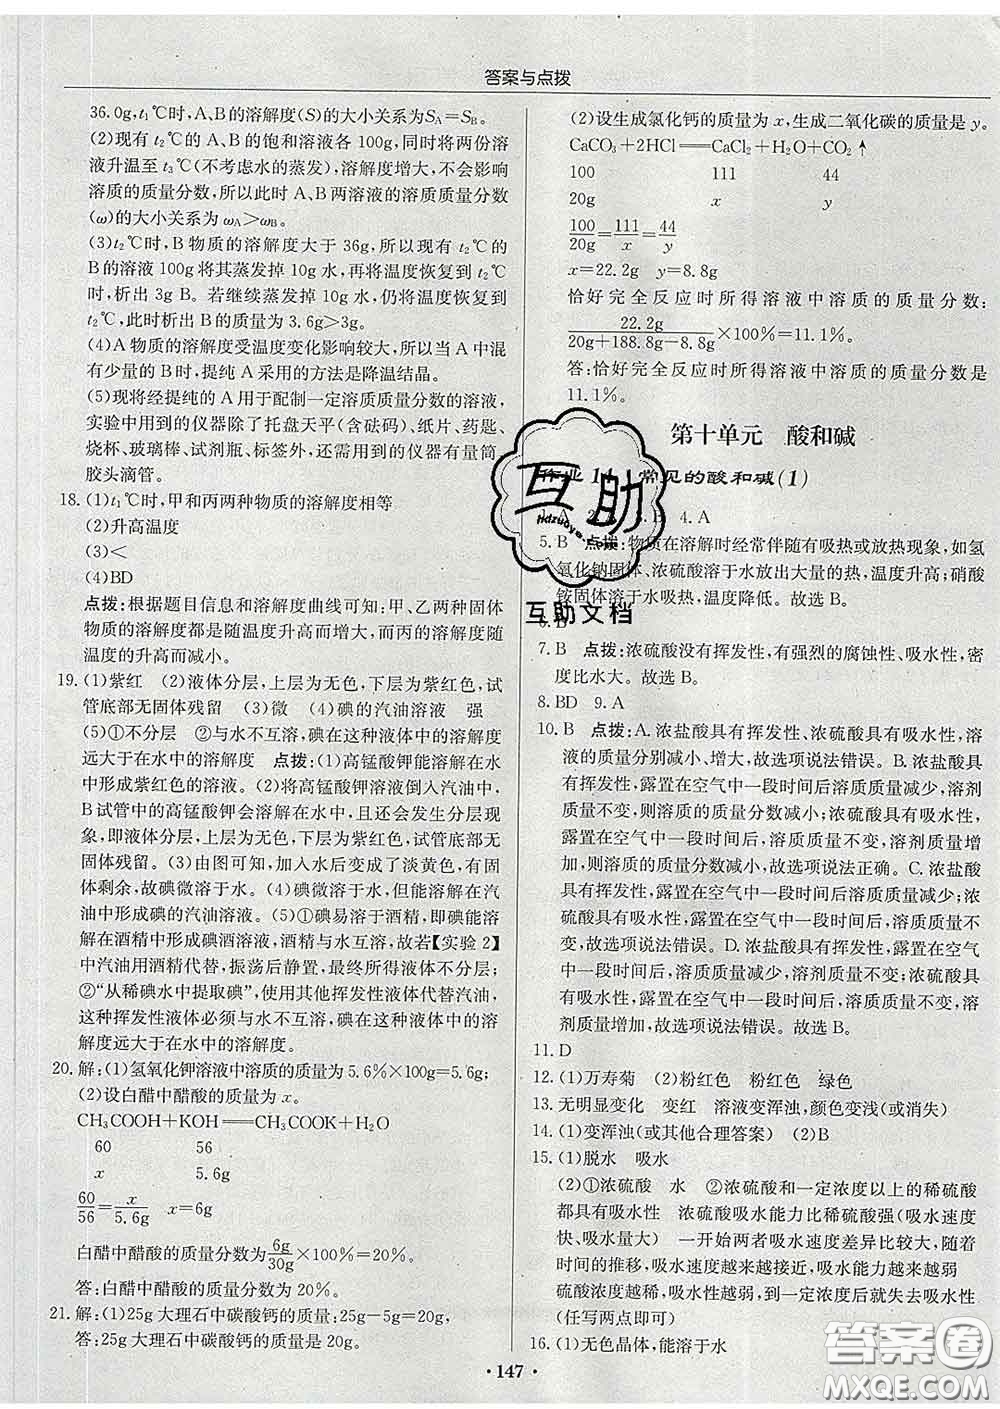 答案与点拨
36.0g,t₁℃时,A、B的溶解度(S)的大小关系为S_A=S_B。
(2)现有 t₂℃的 A、B 的饱和溶液各 100g,同时将两份溶
液升温至 t₃℃(不考虑水的蒸发),溶解度增大,不会影响
溶质的质量分数,所以此时 A、B 两溶液的溶质质量分数
(ω)的大小关系为 ω_A>ω_B。
(3)t₂℃时,B 物质的溶解度大于 36g,所以现有 t₂℃的
B的溶液 100g 将其蒸发掉 10g 水,再将温度恢复到 t₂℃
时,析出 3g B。若继续蒸发掉 10g 水,仍将温度恢复到
t₂℃,此时析出 B 的质量为 3.6g>3g。
(4)A 物质的溶解度受温度变化影响较大,所以当 A 中混
有少量的 B 时,提纯 A 采用的方法是降温结晶。
(5)现将经提纯的 A 用于配制一定溶质质量分数的溶液,
实验中用到的仪器除了托盘天平(含砝码)、纸片、药匙、
烧杯、玻璃棒、试剂瓶、标签以外,还需要用到的仪器有量筒、
胶头滴管。
18. (1)t₁℃时,甲和丙两种物质的溶解度相等
(2)升高温度
(3)<
(4)BD
点拨:根据题目信息和溶解度曲线可知:甲、乙两种固体
物质的溶解度都是随温度升高而增大,而丙的溶解度随
温度的升高而减小。
19. (1)紫红 (2)液体分层,上层为无色,下层为紫红色,试
管底部无固体残留 (3)微 (4)碘的汽油溶液 强
(5)①不分层 ②与水不互溶,碘在这种液体中的溶解度
远大于在水中的溶解度 点拨:(1)高锰酸钾能溶解在水
中形成紫红色的溶液。(2)将高锰酸钾溶液倒入汽油中,
B 试管中的高锰酸钾会溶解在水中,还会发生分层现
象,即液体分层,上层为无色,下层为紫红色,试管底部无
固体残留。(3)由图可知,加入水后变成了淡黄色,有固
体剩余,故碘微溶于水。(4)碘微溶于水,但能溶解在汽
油中形成碘的汽油溶液。(5)①碘易溶于酒精,即碘能溶
解在酒精中形成碘酒溶液,酒精与水互溶,故若【实验 2】
中汽油用酒精代替,振荡后静置,最终所得液体不分层;
②“从稀碘水中提取碘”,使用其他挥发性液体代替汽油,
这种挥发性液体必须与水不互溶,碘在这种液体中的溶
解度远大于在水中的溶解度。
20. 解:(1)氢氧化钾溶液中溶质的质量为 5.6%×100g=5.6g;
(2)设白醋中醋酸的质量为 x。
CH₃COOH+KOH══CH₃COOK+H₂O
60 56
x 5.6g
60/56=x/5.6g x=6g
白醋中醋酸的质量分数为6g/30g×100%=20%。
答:白醋中醋酸的质量分数为 20%。
21. 解:(1)25g 大理石中碳酸钙的质量:25g−5g=20g,
答:25g 大理石中碳酸钙的质量是 20g。
(2)设生成氯化钙的质量为 x,生成二氧化碳的质量是 y。
CaCO₃+2HCl══CaCl₂+H₂O+CO₂↑
100 111 44
20g x y
100/20g=111/x=44/y
x=22.2g y=8.8g
恰好完全反应时所得溶液中溶质的质量分数:
22.2g/20g+188.8g−8.8g×100%=11.1%。
答:恰好完全反应时所得溶液中溶质的质量分数是
11.1%。
第十单元 酸和碱
常见的酸和碱(1)
4. A
5. B 点拨:物质在溶解时经常伴随有吸热或放热现象,如氢
氧化钠固体、浓硫酸溶于水放出大量的热,温度升高;硝酸
铵固体溶于水吸热,温度降低。故选 B。
6. B
7. B 点拨:浓硫酸没有挥发性,有强烈的腐蚀性、吸水性,密
度比水大。故选 B。
8. BD 9. A
10. B 点拨:A. 浓盐酸具有挥发性、浓硫酸具有吸水性,溶
液的质量分别减小、增大,故选项说法错误。B. 浓盐酸具
有挥发性,露置在空气中一段时间后溶质质量减少,溶剂
质量不变,则溶质的质量分数减小;浓硫酸具有吸水性,
露置在空气中一段时间后,溶质质量不变,溶剂质量增
加,则溶质的质量分数减小,故选项说法正确。C. 浓盐酸
具有挥发性,露置在空气中一段时间后溶质质量减少;
浓硫酸具有吸水性,露置在空气中一段时间后,溶质质量不
变,故选项说法错误。D. 浓盐酸具有挥发性,露置在空气
中一段时间后,溶质质量减少,溶剂质量不变;浓硫酸具
有吸水性,露置在空气中一段时间后,溶质质量不变,溶
剂质量增加,故选项说法错误。故选 B。
11. D
12. (1)万寿菊 (2)粉红色 粉红色 绿色
13. 无明显变化 变红 溶液变浑浊,颜色变浅(或消失)
14. (1)变浑浊(或其他合理答案) (2)B
15. (1)脱水 吸水
(2)①浓硫酸 水 ②浓硫酸和一定浓度以上的稀硫酸
都具有吸水性 浓硫酸吸水能力比稀硫酸强(吸水速度
快、吸水量大) 一开始两者吸水速度差异比较大,随着
时间的推移,吸水速度越来越接近,吸水能力越来越弱
硫酸浓度越稀,吸水性越弱,到一定浓度后就失去吸水性
(任写两点即可)
16. (1)无色晶体,能溶于水
• 147 •
互助
互助文档
答案圈
MXQE.COM